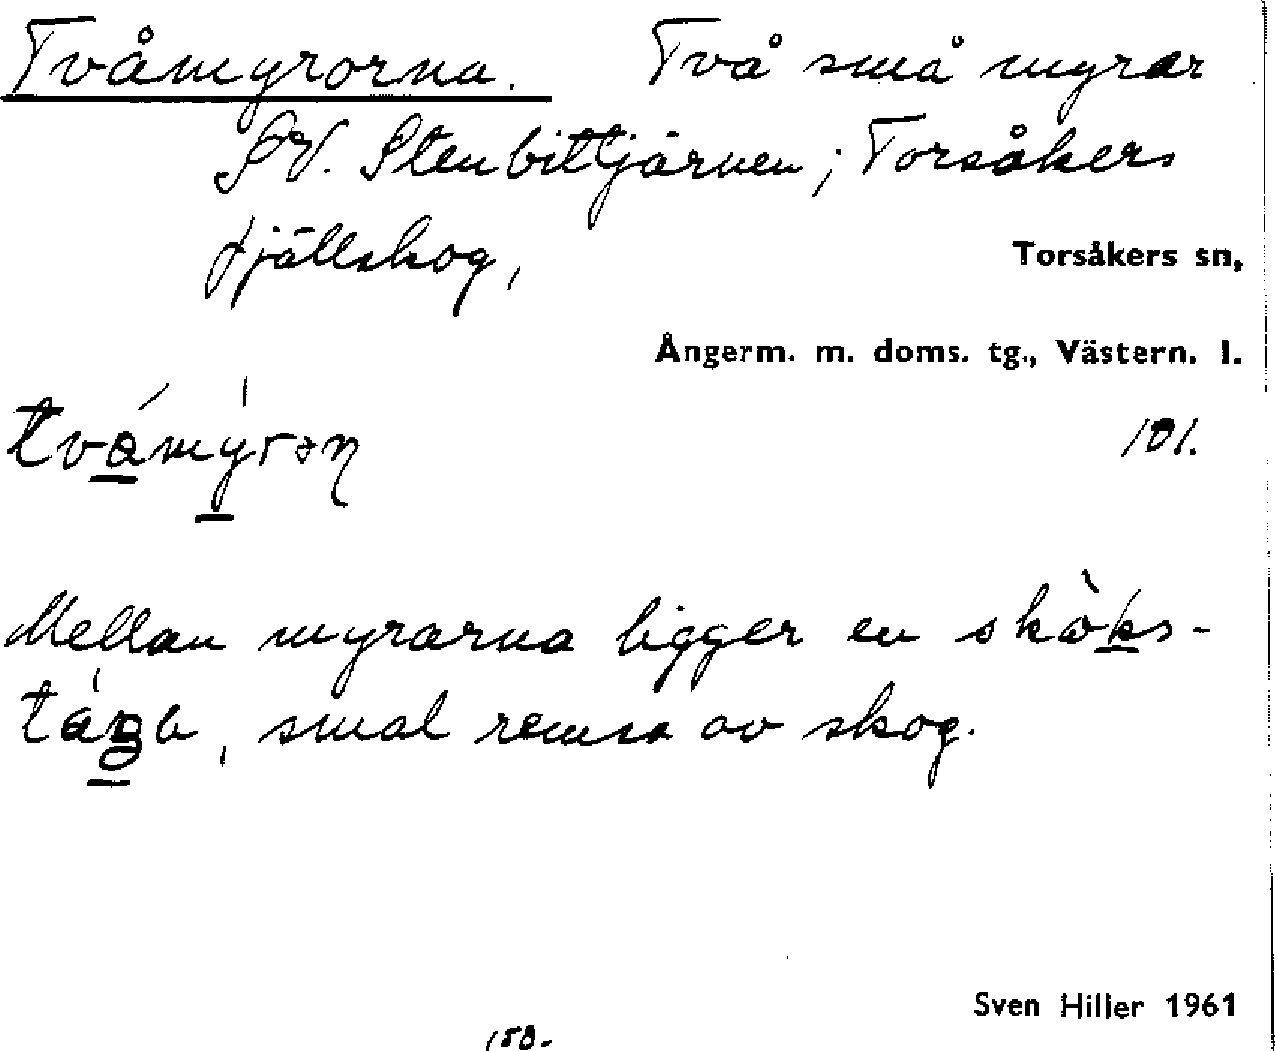 Tvåmyrorna. Två små myrar
SV. Stenbittjärnen; Torsåkers
fjällskog,
Torsåkers sn,
Ångerm. m. doms. tg., Västern. l.
101.
Mellan myrarna ligger en skòks-
tá̱ŋa, smal remsa av skog.
Sven Hiller 1961